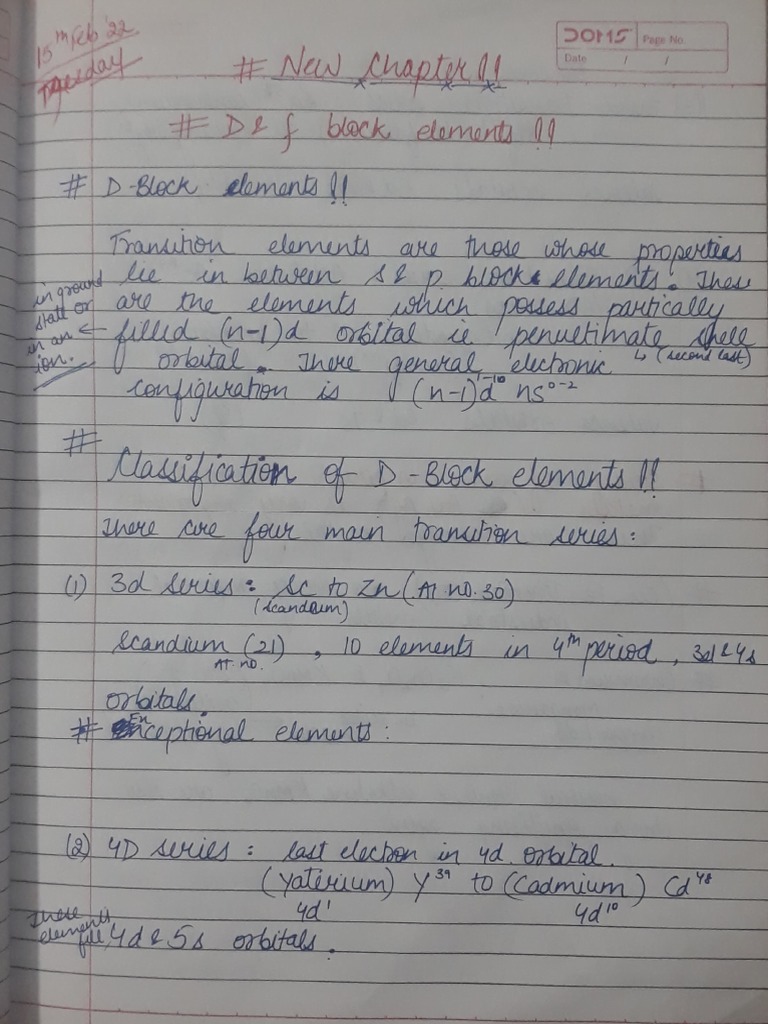 15th Feb '22
Tuesday
DOMS
Page No.
Date / /
# New Chapter !!
# D & f block elements !!
# D-Block elements !!
Transition elements are those whose properties
lie in between s & p block elements. These
are the elements which possess partically
filled (n-1)d orbital ie penultimate shell
in ground state or in an ion.
↳ (second last)
orbital. There general electronic
configuration is (n-1)d¹⁻¹⁰ ns⁰⁻²
#
Classification of D-Block elements !!
There are four main transition series :
(1) 3d series : Sc to Zn (At no. 30)
(scandium)
Scandium (21) , 10 elements in 4th period , 3d & 4s
At. no.
orbitals.
# Exceptional elements :
(2) 4D series : last electron in 4d orbital.
(Yaterium) Y³⁹ to (Cadmium) Cd⁴⁸
4d¹ 4d¹⁰
These elements fill 4d & 5s orbitals.